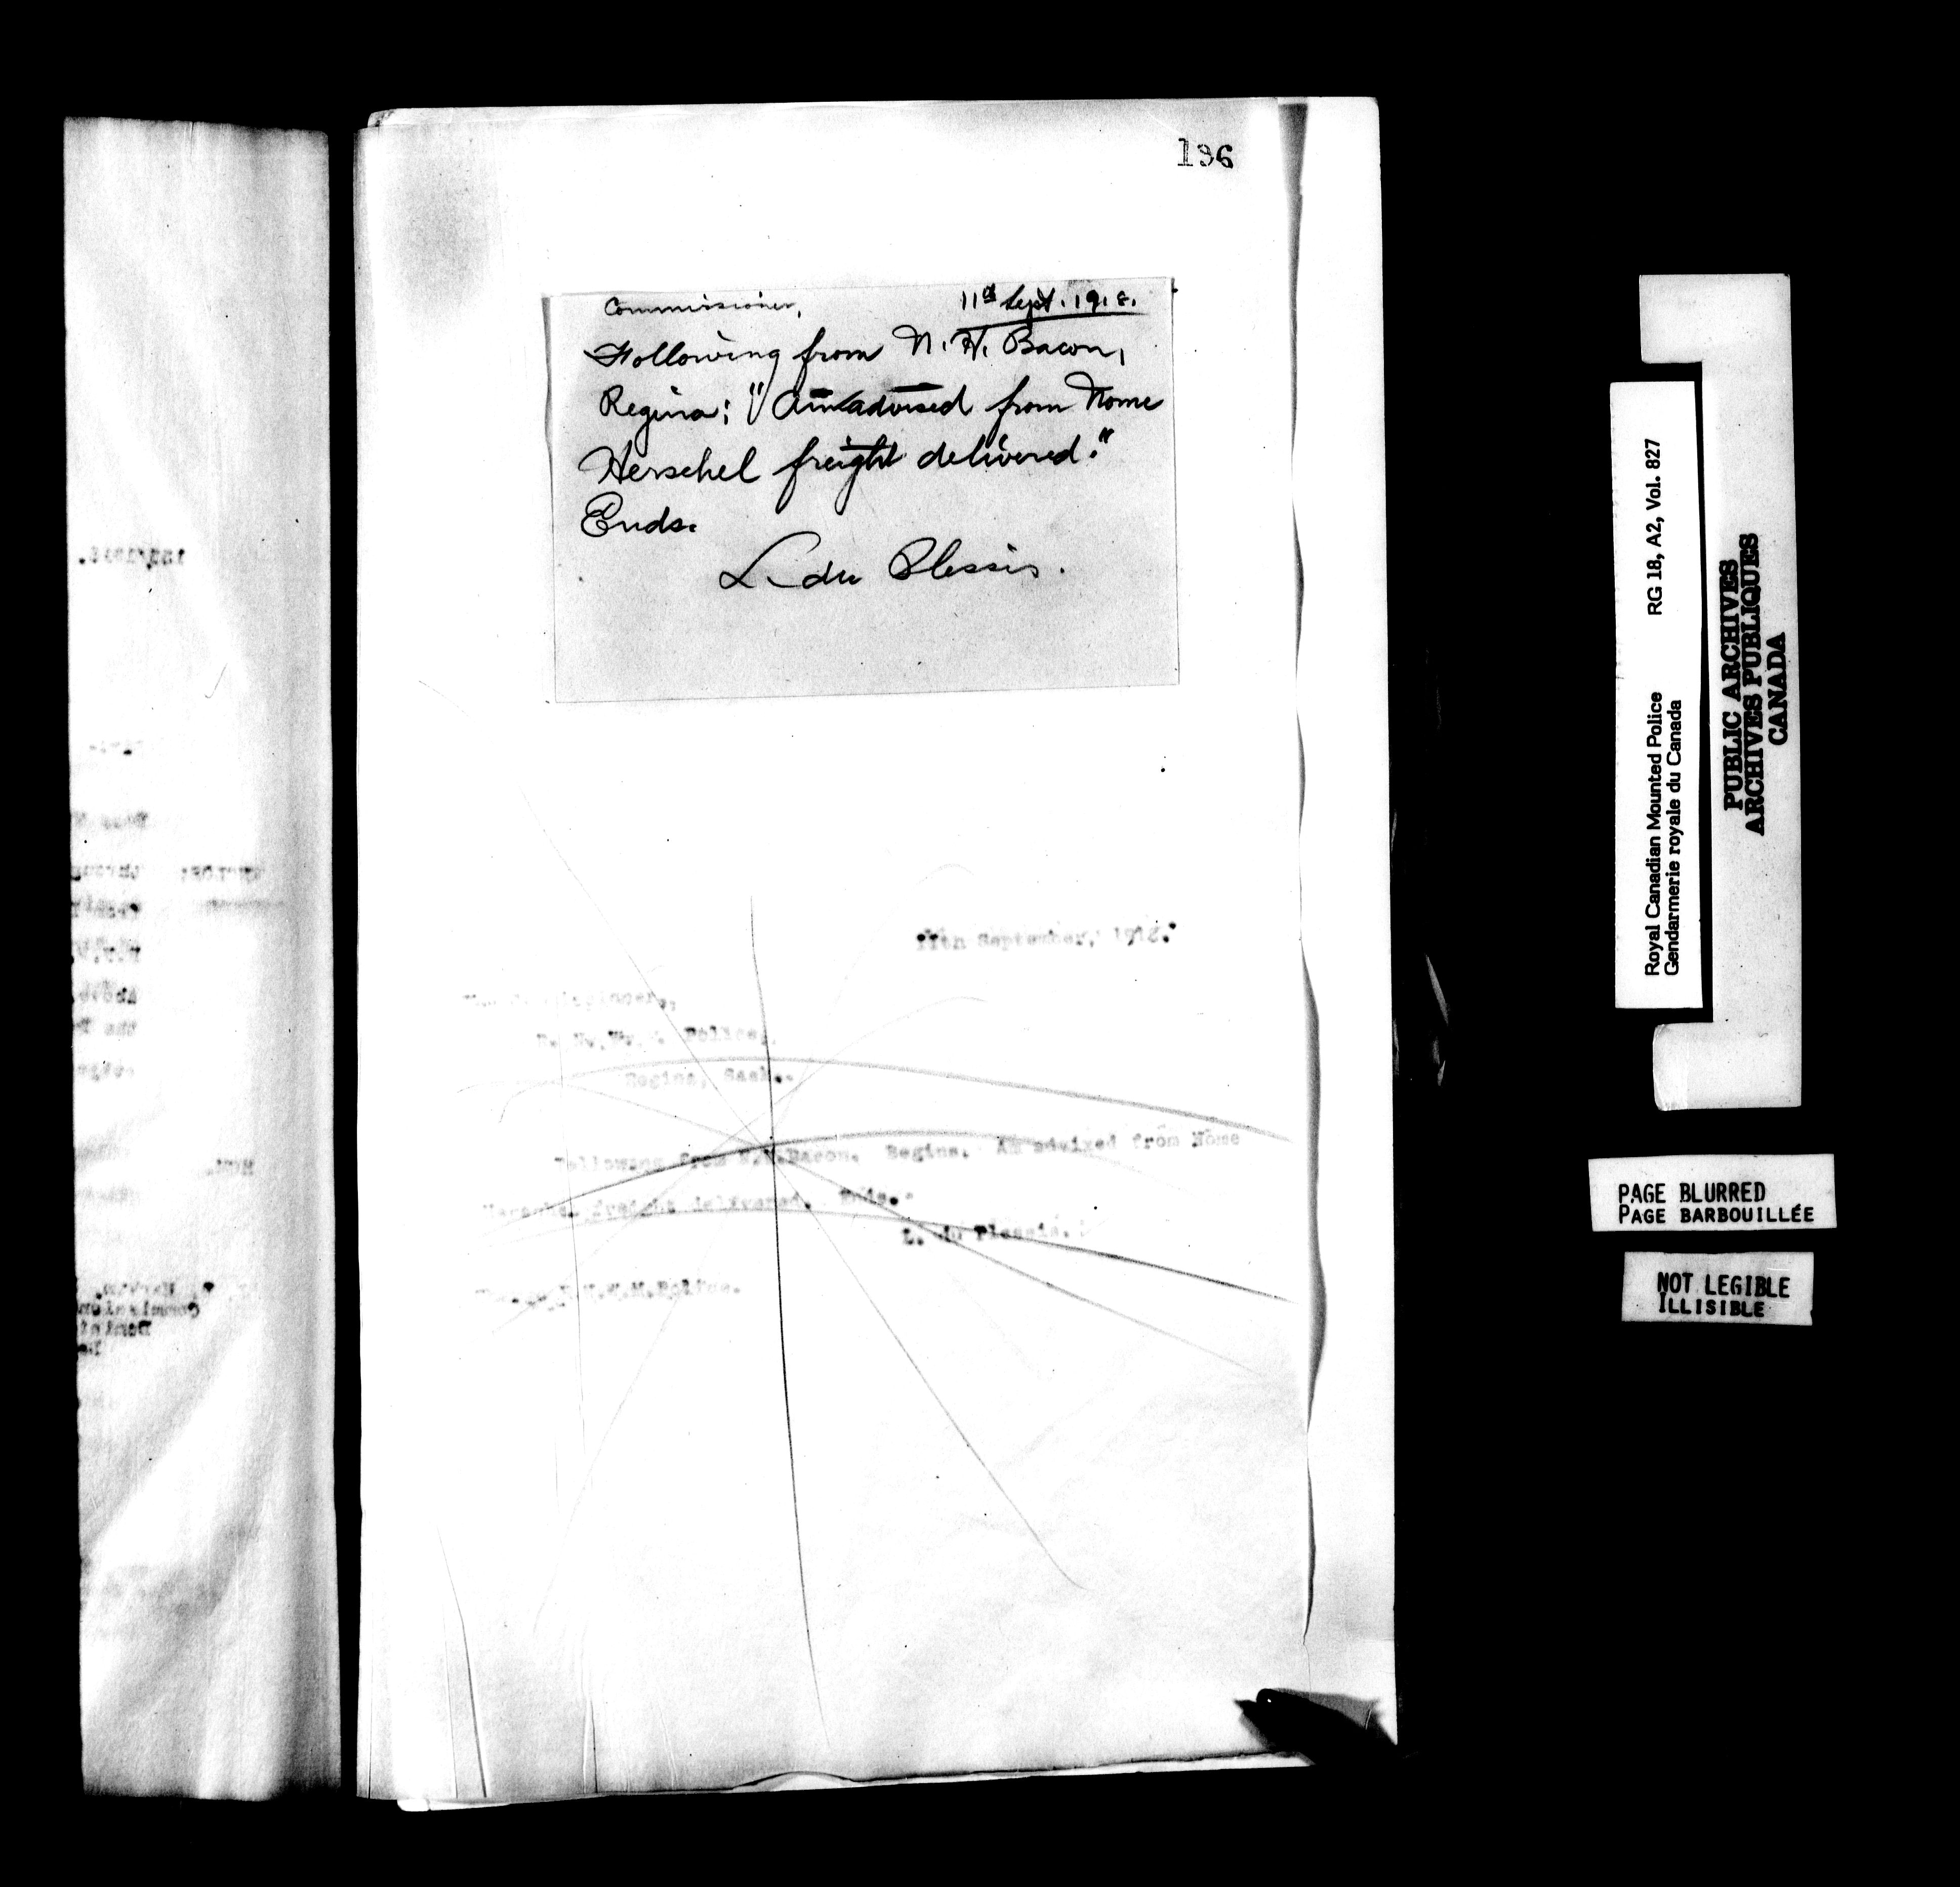 196
Commissioner, 11th Sept. 1918.
Following from N. H. Bacon,
Regina: "Am advised from Nome
Herschel freight delivered."
Ends.
L. du Plessis.
11th September, 1918.
Commissioner,
R. N. W. M. Police,
Regina, Sask.
Following from N.H.Bacon. Begins. Am advixed from Nome
Herschel freight delivered. Ends.
L. du Plessis.
R.N.W.M.Police.
Royal Canadian Mounted Police RG 18, A2, Vol. 827
Gendarmerie royale du Canada
PUBLIC ARCHIVES
ARCHIVES PUBLIQUES
CANADA
PAGE BLURRED
PAGE BARBOUILLÉE
NOT LEGIBLE
ILLISIBLE